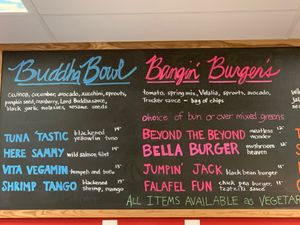 Buddha Bowl
cucumber, avocado, zucchini, sprouts,
pumpkin seed, cranberry, Lord Buddha sauce,
black garlic molasses, sesame seeds
TUNA 'TASTIC blackened yellowfin tuna
HERE SAMMY wild salmon filet
VITA VEGAMIN tempeh and tofu
SHRIMP TANGO blackened shrimp, mango
Bangin' Burgers
tomato, spring mix, Vidalia, sprouts, avocado,
Trucker sauce - bag of chips
choice of bun or over mixed greens
BEYOND THE BEYOND meatless wonder
BELLA BURGER mushroom heaven
JUMPIN' JACK black bean burger
FALAFEL FUN chick pea burger, tzatziki sauce
ALL ITEMS AVAILABLE as VEGETAR